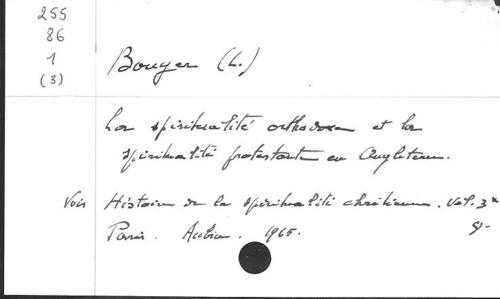 255
86
1
(3)
Bouyer (L.)
La spiritualité orthodoxe et la
spiritualité protestante en Angleterre.
Voir Histoire de la spiritualité chrétienne. Vol. 3*
Paris. Aubier. 1965.